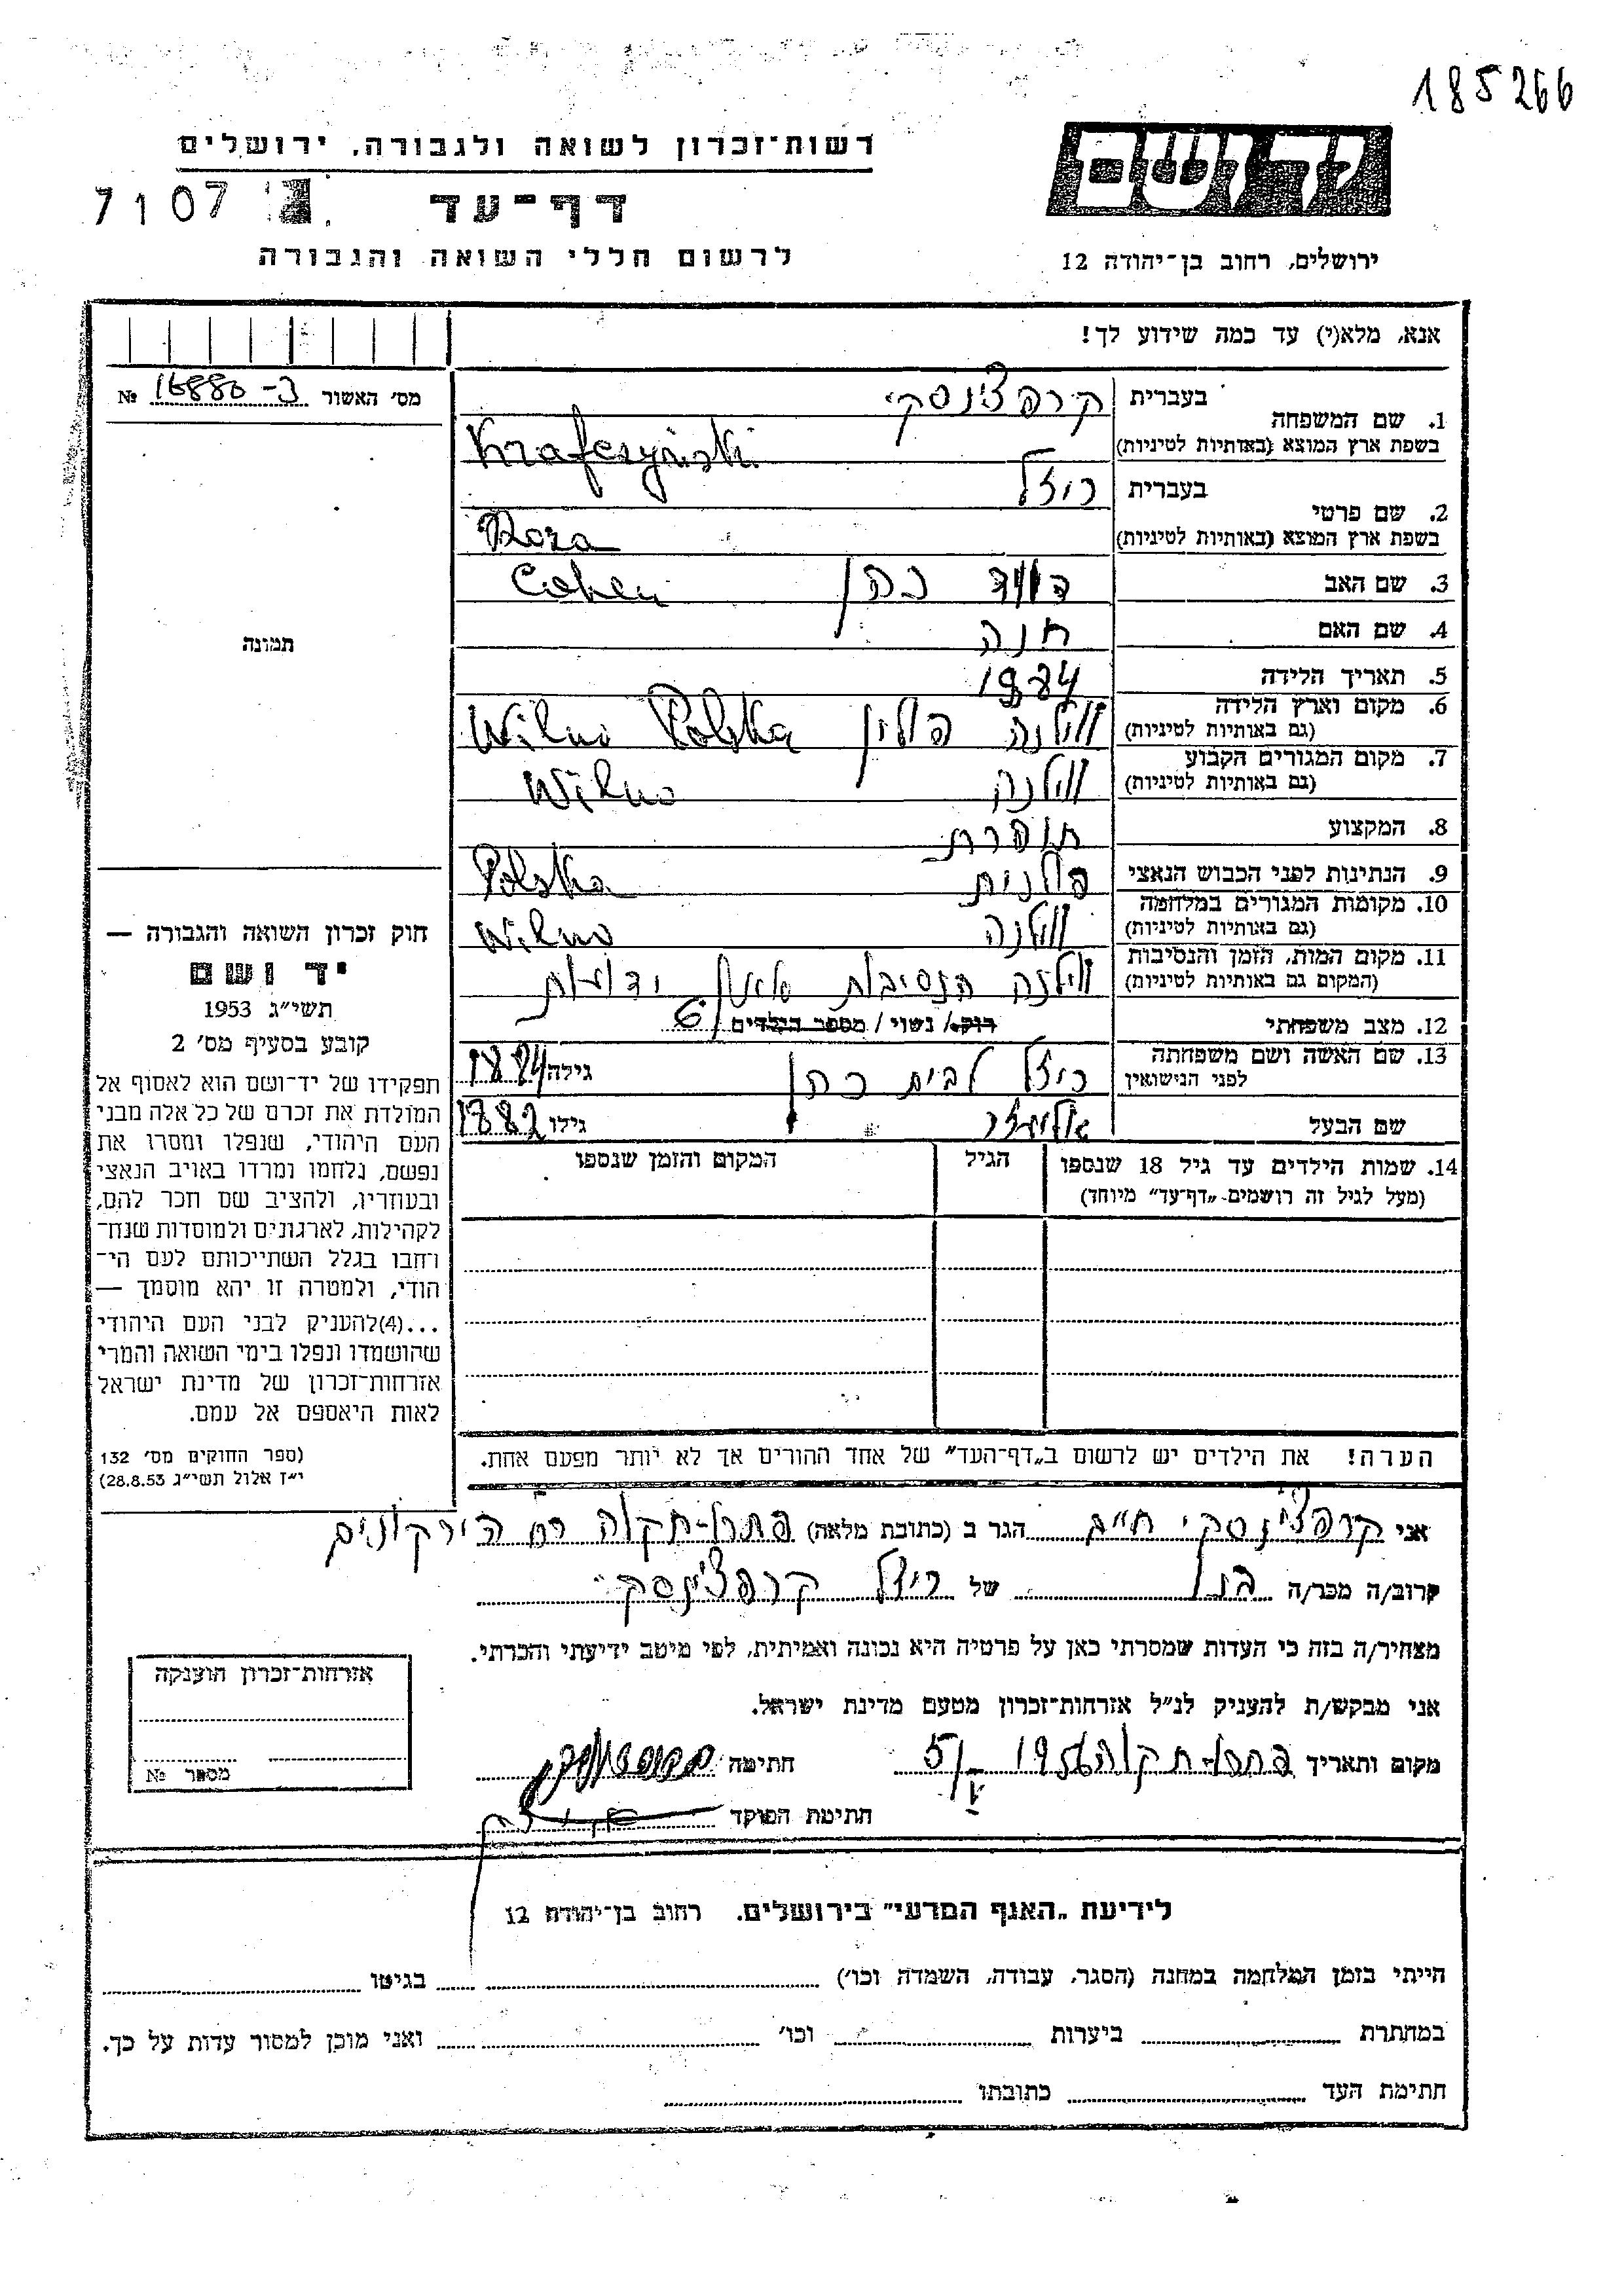 185266
רשות־זכרון לשואה ולגבורה, ירושלים
יד ושם
דף־עד
7107
לרשום חללי השואה והגבורה
ירושלים, רחוב בן־יהודה 12
אנא, מלא(י) עד כמה שידוע לך!
מס' האשור 16880-3 №
1. שם המשפחה
בעברית קרפצ'ינסקי
בשפת ארץ המוצא (באותיות לטיניות) Krafczyński
2. שם פרטי
בעברית רוזל
בשפת ארץ המוצא (באותיות לטיניות) Roza
3. שם האב דוד כהן Cohen
4. שם האם חנה
5. תאריך הלידה 1884
6. מקום וארץ הלידה
(גם באותיות לטיניות) ווילנה פולין Wilno Polska
7. מקום המגורים הקבוע
(גם באותיות לטיניות) ווילנה Wilno
8. המקצוע תופרת
9. הנתינות לפני הכבוש הנאצי פולנית Polska
10. מקומות המגורים במלחמה
(גם באותיות לטיניות) ווילנה Wilno
11. מקום המות, הזמן והנסיבות
(המקום גם באותיות לטיניות) ווילנה הנסיבות ידועות
12. מצב משפחתי רוק/ נשוי / מספר הילדים 6
13. שם האשה ושם משפחתה
לפני הנישואין רוזל לבית כהן גילה 1884
שם הבעל גילו 1882
14. שמות הילדים עד גיל 18 שנספו
(מעל לגיל זה רושמים „דף־עד” מיוחד)
הגיל
המקום והזמן שנספו
הערה! את הילדים יש לרשום ב„דף־העד” של אחד ההורים אך לא יותר מפעם אחת.
תמונה
חוק זכרון השואה והגבורה —
יד ושם
תשי״ג 1953
קובע בסעיף מס' 2
תפקידו של יד־ושם הוא לאסוף אל
המולדת את זכרם של כל אלה מבני
העם היהודי, שנפלו ומסרו את
נפשם, נלחמו ומרדו באויב הנאצי
ובעוזריו, ולהציב שם חכר להם,
לקהילות, לארגונים ולמוסדות שנח־
רחבו בגלל השתייכותם לעם הי־
הודי, ולמטרה זו יהא מוסמך —
...(4)להעניק לבני העם היהודי
שהושמדו ונפלו בימי השואה והמרי
אזרחות־זכרון של מדינת ישראל
לאות היאספם אל עמם.
(ספר החוקים מס' 132
י״ז אלול תשי״ג 28.8.53)
אני קרפצ'ינסקי חיים הגר ב (כתובת מלאה) פתח-תקוה רח הירקונים
קרוב/ה מכר/ה בנו של רוזל קרפצ'ינסקי
מצהיר/ה בזה כי העדות שמסרתי כאן על פרטיה היא נכונה ואמיתית, לפי מיטב ידיעתי והכרתי.
אני מבקש/ת להעניק לנ״ל אזרחות־זכרון מטעם מדינת ישראל.
מקום ותאריך פתח-תקוה 5/V 1956 חתימה
חתימת הפוקד
אזרחות־זכרון הוענקה
מספר №
לידיעת „האגף המדעי” בירושלים, רחוב בן־יהודה 12
הייתי בזמן המלחמה במחנה (הסגר, עבודה, השמדה וכו') בגיטו
במחתרת ביערות וכו' ואני מוכן למסור עדות על כך.
חתימת העד כתובתו